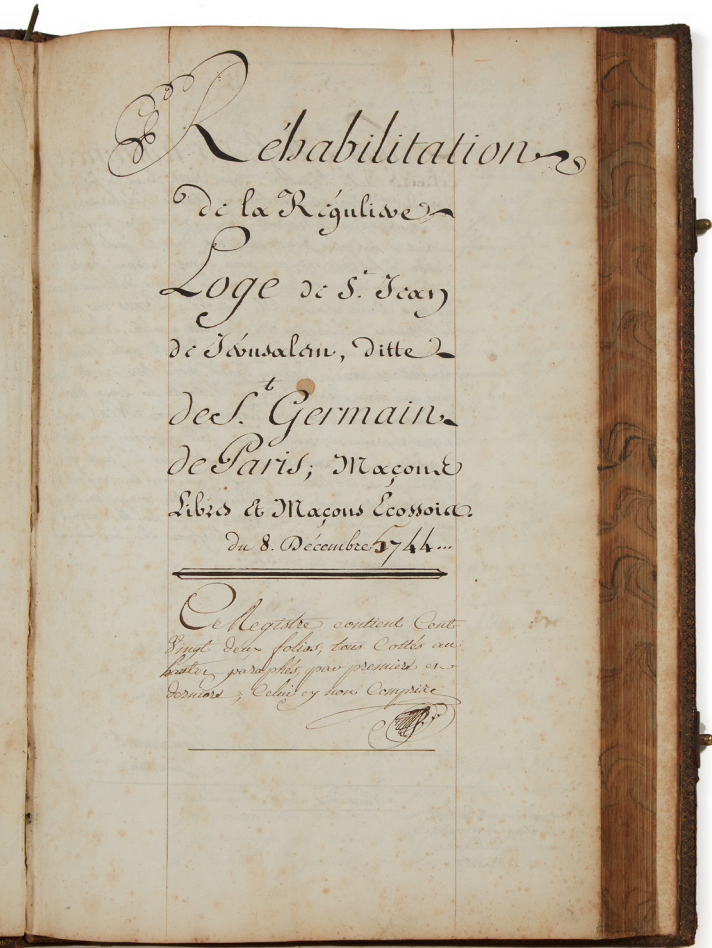 Réhabilitation
de la Régulière
Loge de St. Jean
de Jérusalem, ditte
de St. Germain
de Paris; Maçons
Libres et Maçons Ecossois.
du 8. Décembre 5744...
Ce Registre contient Cent
Vingt deux folios, tous Cottés au
paraphés, par premier et
dernier; Celui cy non Compris